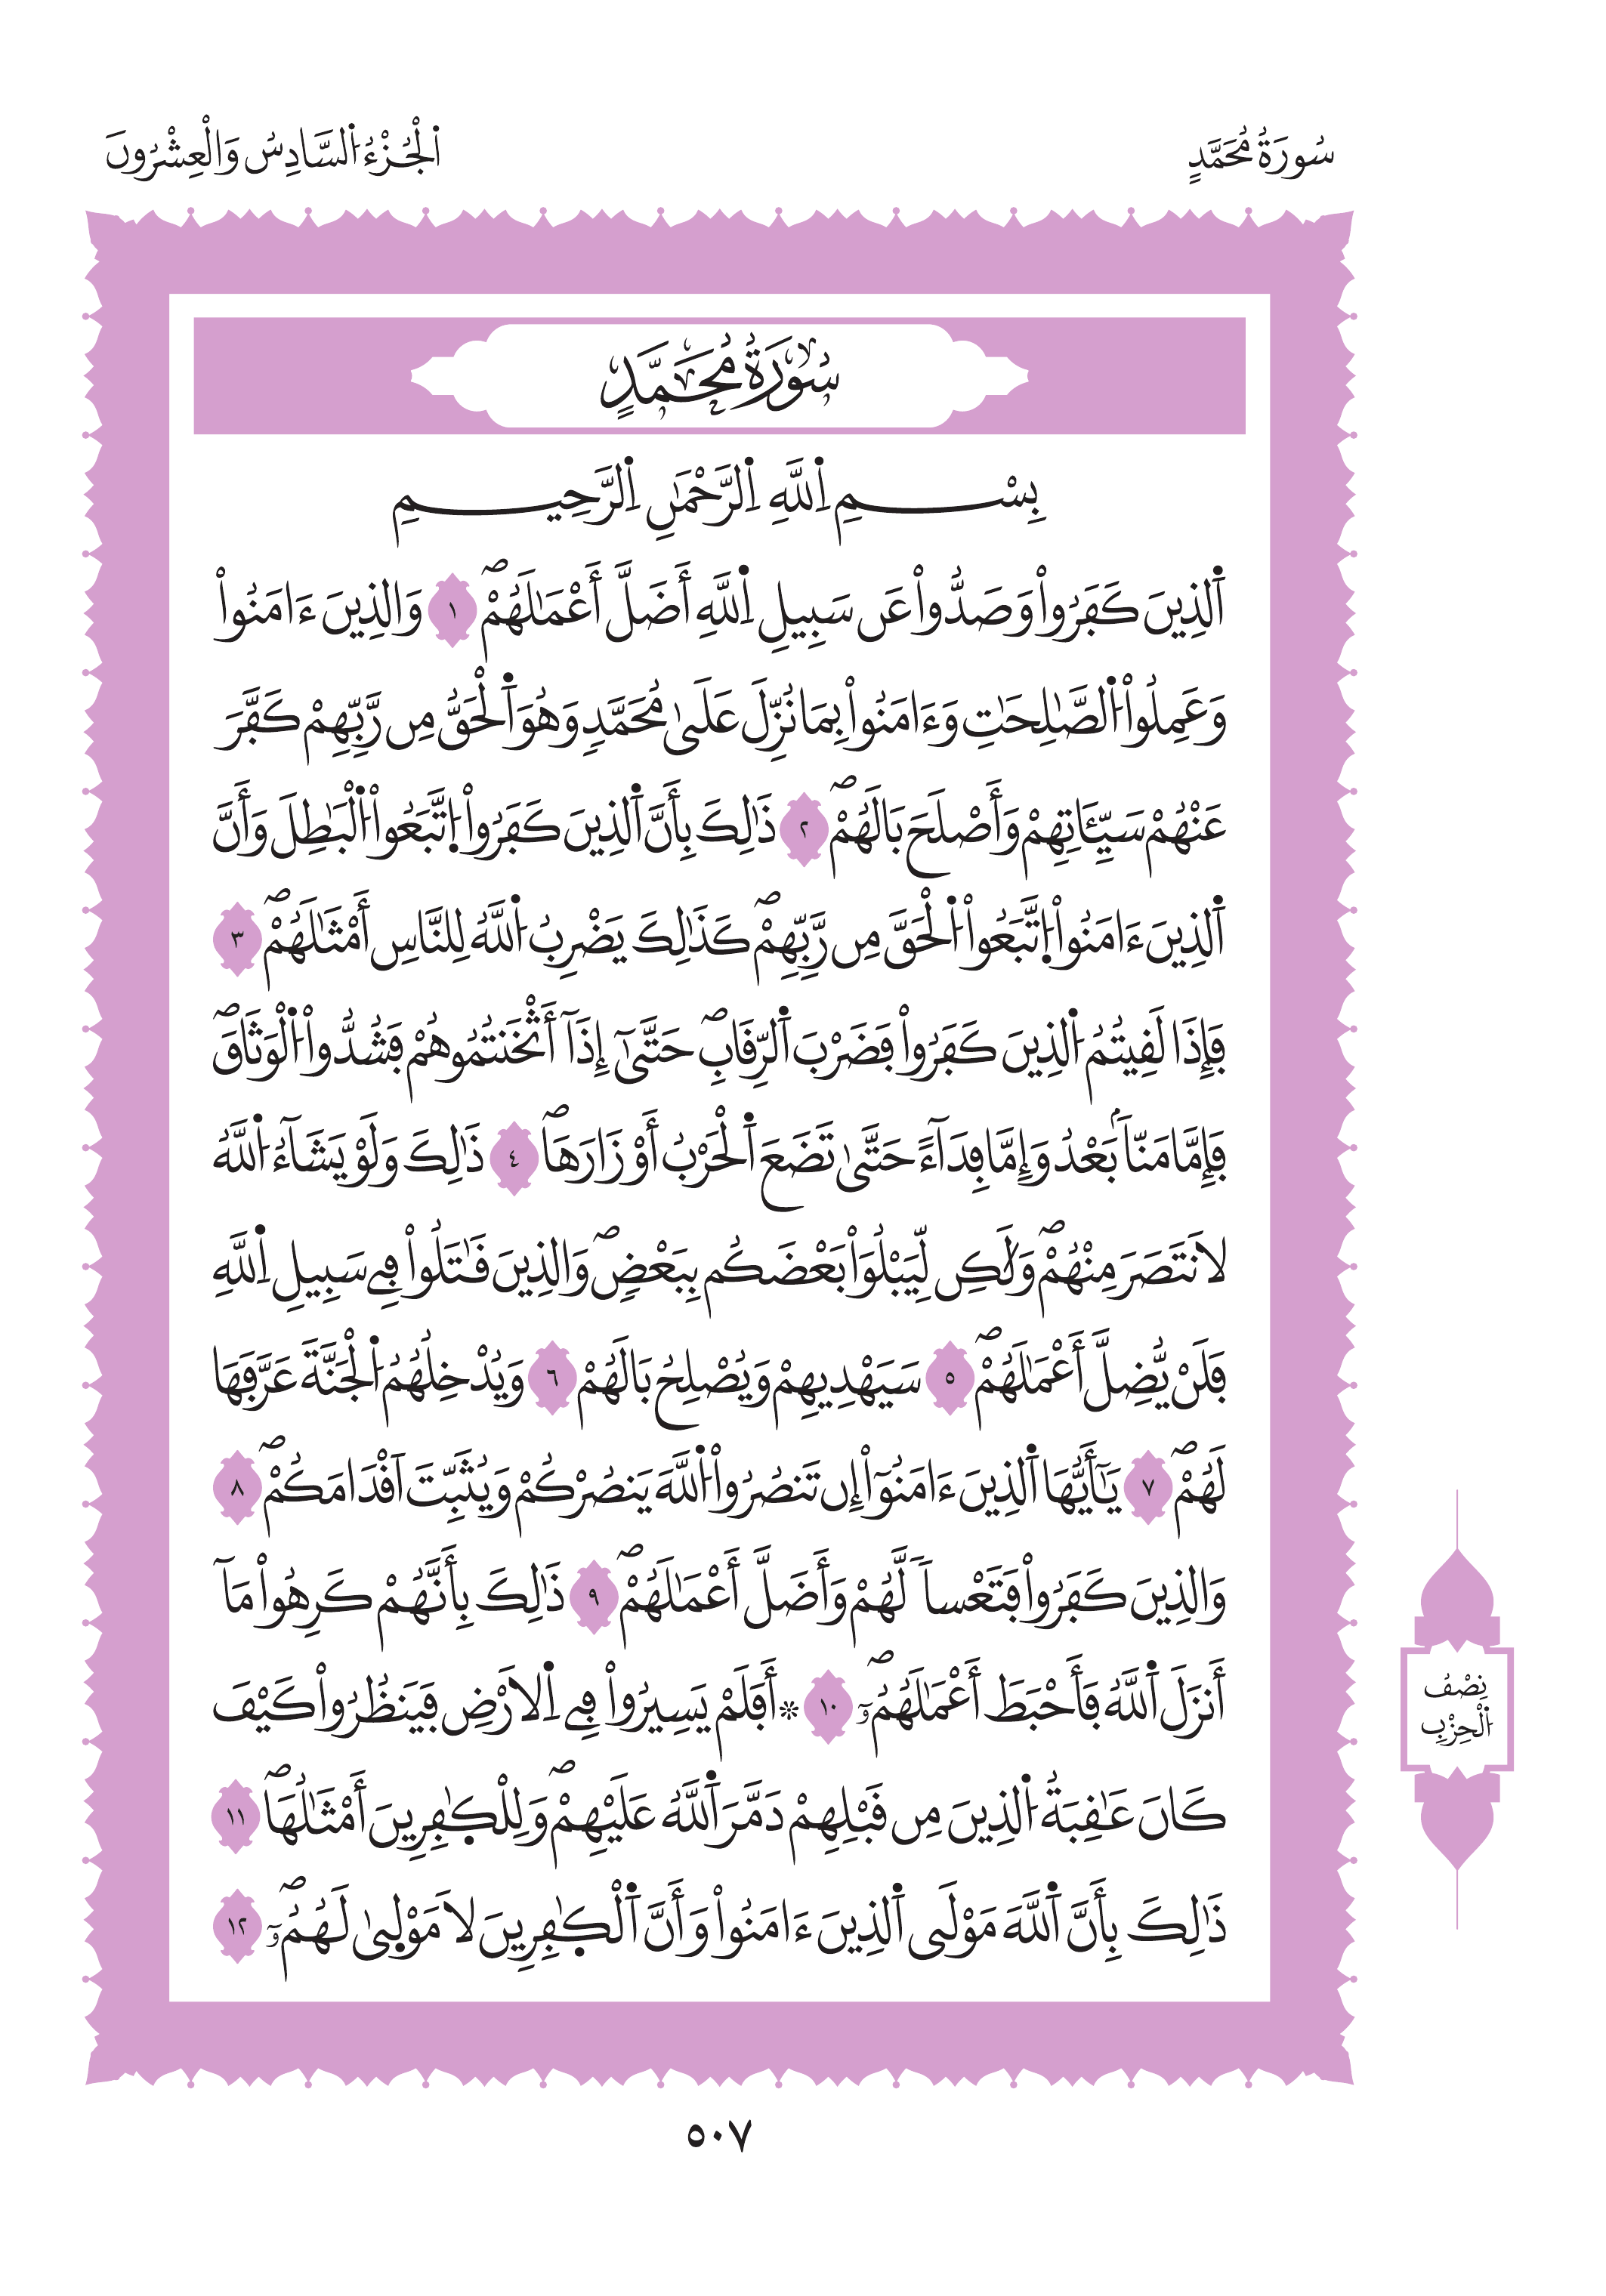 سُورَةُ مُحَمَّدٍ
اَ۬لْجُزْءُ اُ۬لسَّادِسُ وَالْعِشْرُونَ
سُورَةُ مُحَمَّدٍ
بِسْمِ اِ۬للَّهِ اِ۬لرَّحْمَٰنِ اِ۬لرَّحِيمِ
اَ۬لذِينَ كَفَرُواْ وَصَدُّواْ عَن سَبِيلِ اِ۬للَّهِ أَضَلَّ أَعْمَٰلَهُمْۖ ١ وَالذِينَ ءَامَنُواْ
وَعَمِلُواْ اُ۬لصَّٰلِحَٰتِ وَءَامَنُواْ بِمَا نُزِّلَ عَلَىٰ مُحَمَّدٖ وَهُوَ اَ۬لْحَقُّ مِن رَّبِّهِمْ كَفَّرَ
عَنْهُمْ سَيِّـَٔاتِهِمْ وَأَصْلَحَ بَالَهُمْۖ ٢ ذَٰلِكَ بِأَنَّ اَ۬لذِينَ كَفَرُواْ اُ۪تَّبَعُواْ اُ۬لْبَٰطِلَ وَأَنَّ
اَ۬لذِينَ ءَامَنُواْ اُ۪تَّبَعُواْ اُ۬لْحَقَّ مِن رَّبِّهِمْۖ كَذَٰلِكَ يَضْرِبُ اُ۬للَّهُ لِلنَّاسِ أَمْثَٰلَهُمْۖ ٣
فَإِذَا لَقِيتُمُ اُ۬لذِينَ كَفَرُواْ فَضَرْبَ اَ۬لرِّقَابِۖ حَتَّىٰٓ إِذَآ أَثْخَنتُمُوهُمْ فَشُدُّواْ اُ۬لْوَثَاقَۖ
فَإِمَّا مَنّاَۢ بَعْدُ وَإِمَّا فِدَآءً حَتَّىٰ تَضَعَ اَ۬لْحَرْبُ أَوْزَارَهَاۖ ٤ ذَٰلِكَ وَلَوْ يَشَآءُ اُ۬للَّهُ
لَانتَصَرَ مِنْهُمْۖ وَلَٰكِن لِّيَبْلُوَاْ بَعْضَكُم بِبَعْضٖۖ وَالذِينَ قَٰتَلُواْ فِے سَبِيلِ اِ۬للَّهِ
فَلَنْ يُّضِلَّ أَعْمَٰلَهُمْۖ ٥ سَيَهْدِيهِمْ وَيُصْلِحُ بَالَهُمْ ٦ وَيُدْخِلُهُمُ اُ۬لْجَنَّةَ عَرَّفَهَا
لَهُمْۖ ٧ يَٰٓأَيُّهَا اَ۬لذِينَ ءَامَنُوٓاْ إِن تَنصُرُواْ اُ۬للَّهَ يَنصُرْكُمْ وَيُثَبِّتَ اَقْدَامَكُمْۖ ٨
وَالذِينَ كَفَرُواْ فَتَعْساٗ لَّهُمْ وَأَضَلَّ أَعْمَٰلَهُمْۖ ٩ ذَٰلِكَ بِأَنَّهُمْ كَرِهُواْ مَآ
أَنزَلَ اَ۬للَّهُ فَأَحْبَطَ أَعْمَٰلَهُمُۥٓۖ ١٠ ۞ أَفَلَمْ يَسِيرُواْ فِے اِ۬لَارْضِ فَيَنظُرُواْ كَيْفَ
كَانَ عَٰقِبَةُ اُ۬لذِينَ مِن قَبْلِهِمْ دَمَّرَ اَ۬للَّهُ عَلَيْهِمْۖ وَلِلْكٰ۪فِرِينَ أَمْثَٰلُهَاۖ ١١
ذَٰلِكَ بِأَنَّ اَ۬للَّهَ مَوْلَى اَ۬لذِينَ ءَامَنُواْ وَأَنَّ اَ۬لْكٰ۪فِرِينَ لَا مَوْل۪ىٰ لَهُمُۥٓۖ ١٢
نِصْفُ
اُ۬لْحِزْبِ
٥٠٧